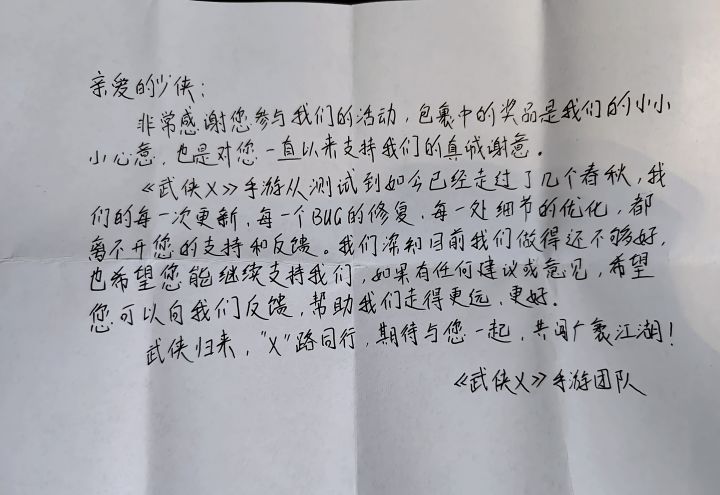 亲爱的少侠：
非常感谢您参与我们的活动，包裹中的奖品是我们的小小
小心意，也是对您一直以来支持我们的真诚谢意。
《武侠X》手游从测试到如今已经走过了几个春秋，我
们的每一次更新、每一个BUG的修复、每一处细节的优化，都
离不开您的支持和反馈。我们深知目前我们做得还不够好，
也希望您能继续支持我们，如果有任何建议或意见，希望
您可以向我们反馈，帮助我们走得更远、更好。
武侠归来，"X"路同行，期待与您一起，共闯广袤江湖！
《武侠X》手游团队